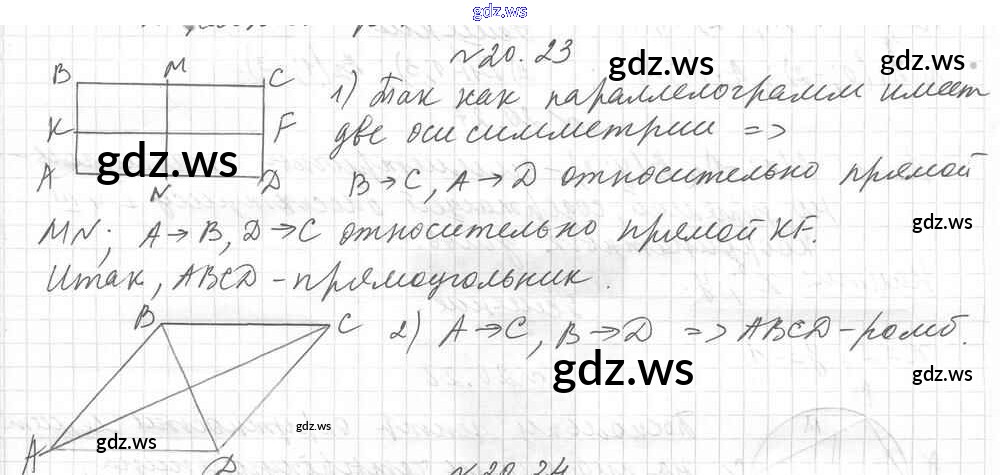 gdz.ws
№20.23
gdz.ws
gdz.ws
B M C
1) Так как параллелограмм имеет
K F
две оси симметрии =>
gdz.ws
A N D
B→C, A→D относительно прямой
gdz.ws
MN; A→B, D→C относительно прямой KF.
Итак, ABCD - прямоугольник.
B C
2) A→C, B→D => ABCD - ромб.
gdz.ws
gdz.ws
gdz.ws
gdz.ws
A D
№20.24